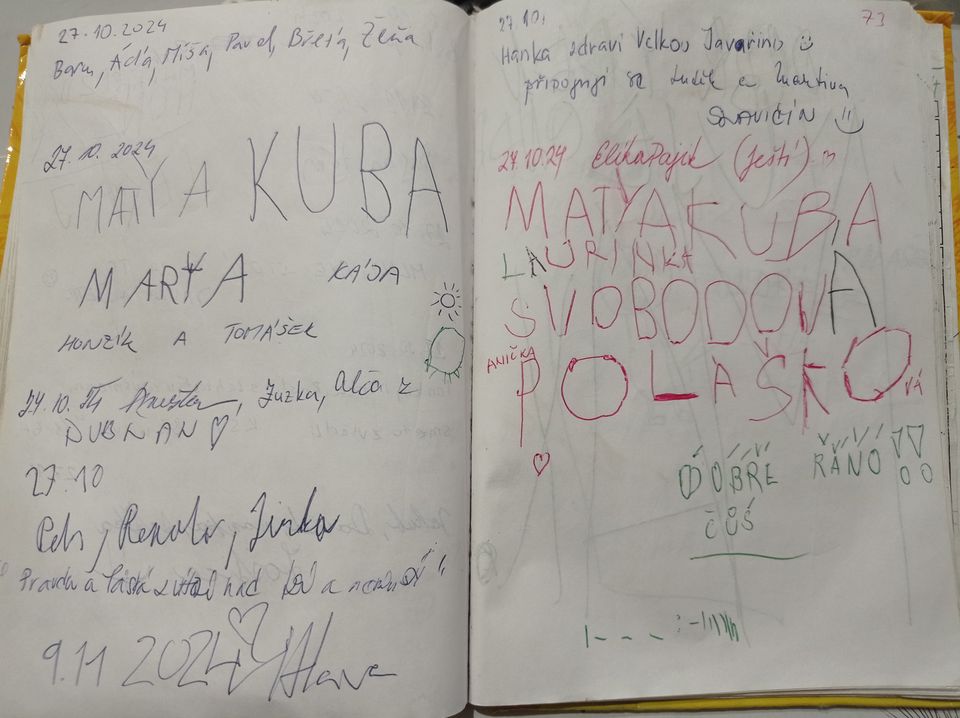 27.10.2024
Baru, Áďa, Míša, Pavel, Břeťa, Žeňa
27.10. 2024
MATYA KUBA
MARTA KÁJA
HONZÍK A TOMÁŠEK
Zuzka, Alča z
DUBŇAN ♡
27.10
Petr, Renata, Jirka
Pravda a láska zvítězí nad lží a nenávistí
9.11 2024
73
27.10.
Hanka zdraví Velkou Javořinu
připojují se Luděk a Martina
SLAVIČÍN
27.10.24 Eliška Pajík (Ještě)
MATYAKUBA
LAURINKA
SVOBODOVA
ANIČKA
POLAŠKOVÁ
DOBŘE RÁNO !!
ČUŠ